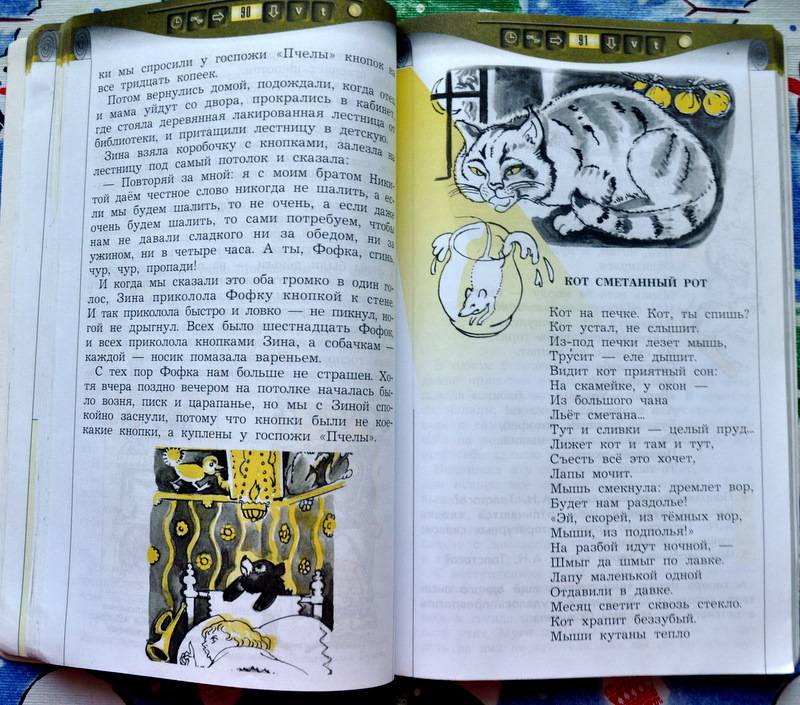 90
ки мы спросили у госпожи «Пчелы» кнопок на
все тридцать копеек.
Потом вернулись домой, подождали, когда отец
и мама уйдут со двора, прокрались в кабинет,
где стояла деревянная лакированная лестница от
библиотеки, и притащили лестницу в детскую.
Зина взяла коробочку с кнопками, залезла на
лестницу под самый потолок и сказала:
— Повторяй за мной: я с моим братом Ники-
той даём честное слово никогда не шалить, а ес-
ли мы будем шалить, то не очень, а если даже
очень будем шалить, то сами потребуем, чтобы
нам не давали сладкого ни за обедом, ни за
ужином, ни в четыре часа. А ты, Фофка, сгинь,
чур, чур, пропади!
И когда мы сказали это оба громко в один го-
лос, Зина приколола Фофку кнопкой к стене.
И так приколола быстро и ловко — не пикнул, но-
гой не дрыгнул. Всех было шестнадцать Фофок,
и всех приколола кнопками Зина, а собачкам —
каждой — носик помазала вареньем.
С тех пор Фофка нам больше не страшен. Хо-
тя вчера поздно вечером на потолке началась бы-
ло возня, писк и царапанье, но мы с Зиной спо-
койно заснули, потому что кнопки были не кое-
какие кнопки, а куплены у госпожи «Пчелы».
91
КОТ СМЕТАННЫЙ РОТ
Кот на печке. Кот, ты спишь?
Кот устал, не слышит.
Из-под печки лезет мышь,
Тру́сит — еле дышит.
Видит кот приятный сон:
На скамейке, у окон —
Из большого чана
Льёт сметана...
Тут и сливки — целый пруд...
Лижет кот и там и тут,
Съесть всё это хочет,
Лапы мочит.
Мышь смекнула: дремлет вор,
Будет нам раздолье!
«Эй, скорей, из тёмных нор,
Мыши, из подполья!»
На разбой идут ночной, —
Шмыг да шмыг по лавке.
Лапу маленькой одной
Отдавили в давке.
Месяц светит сквозь стекло.
Кот храпит беззубый.
Мыши кутаны тепло